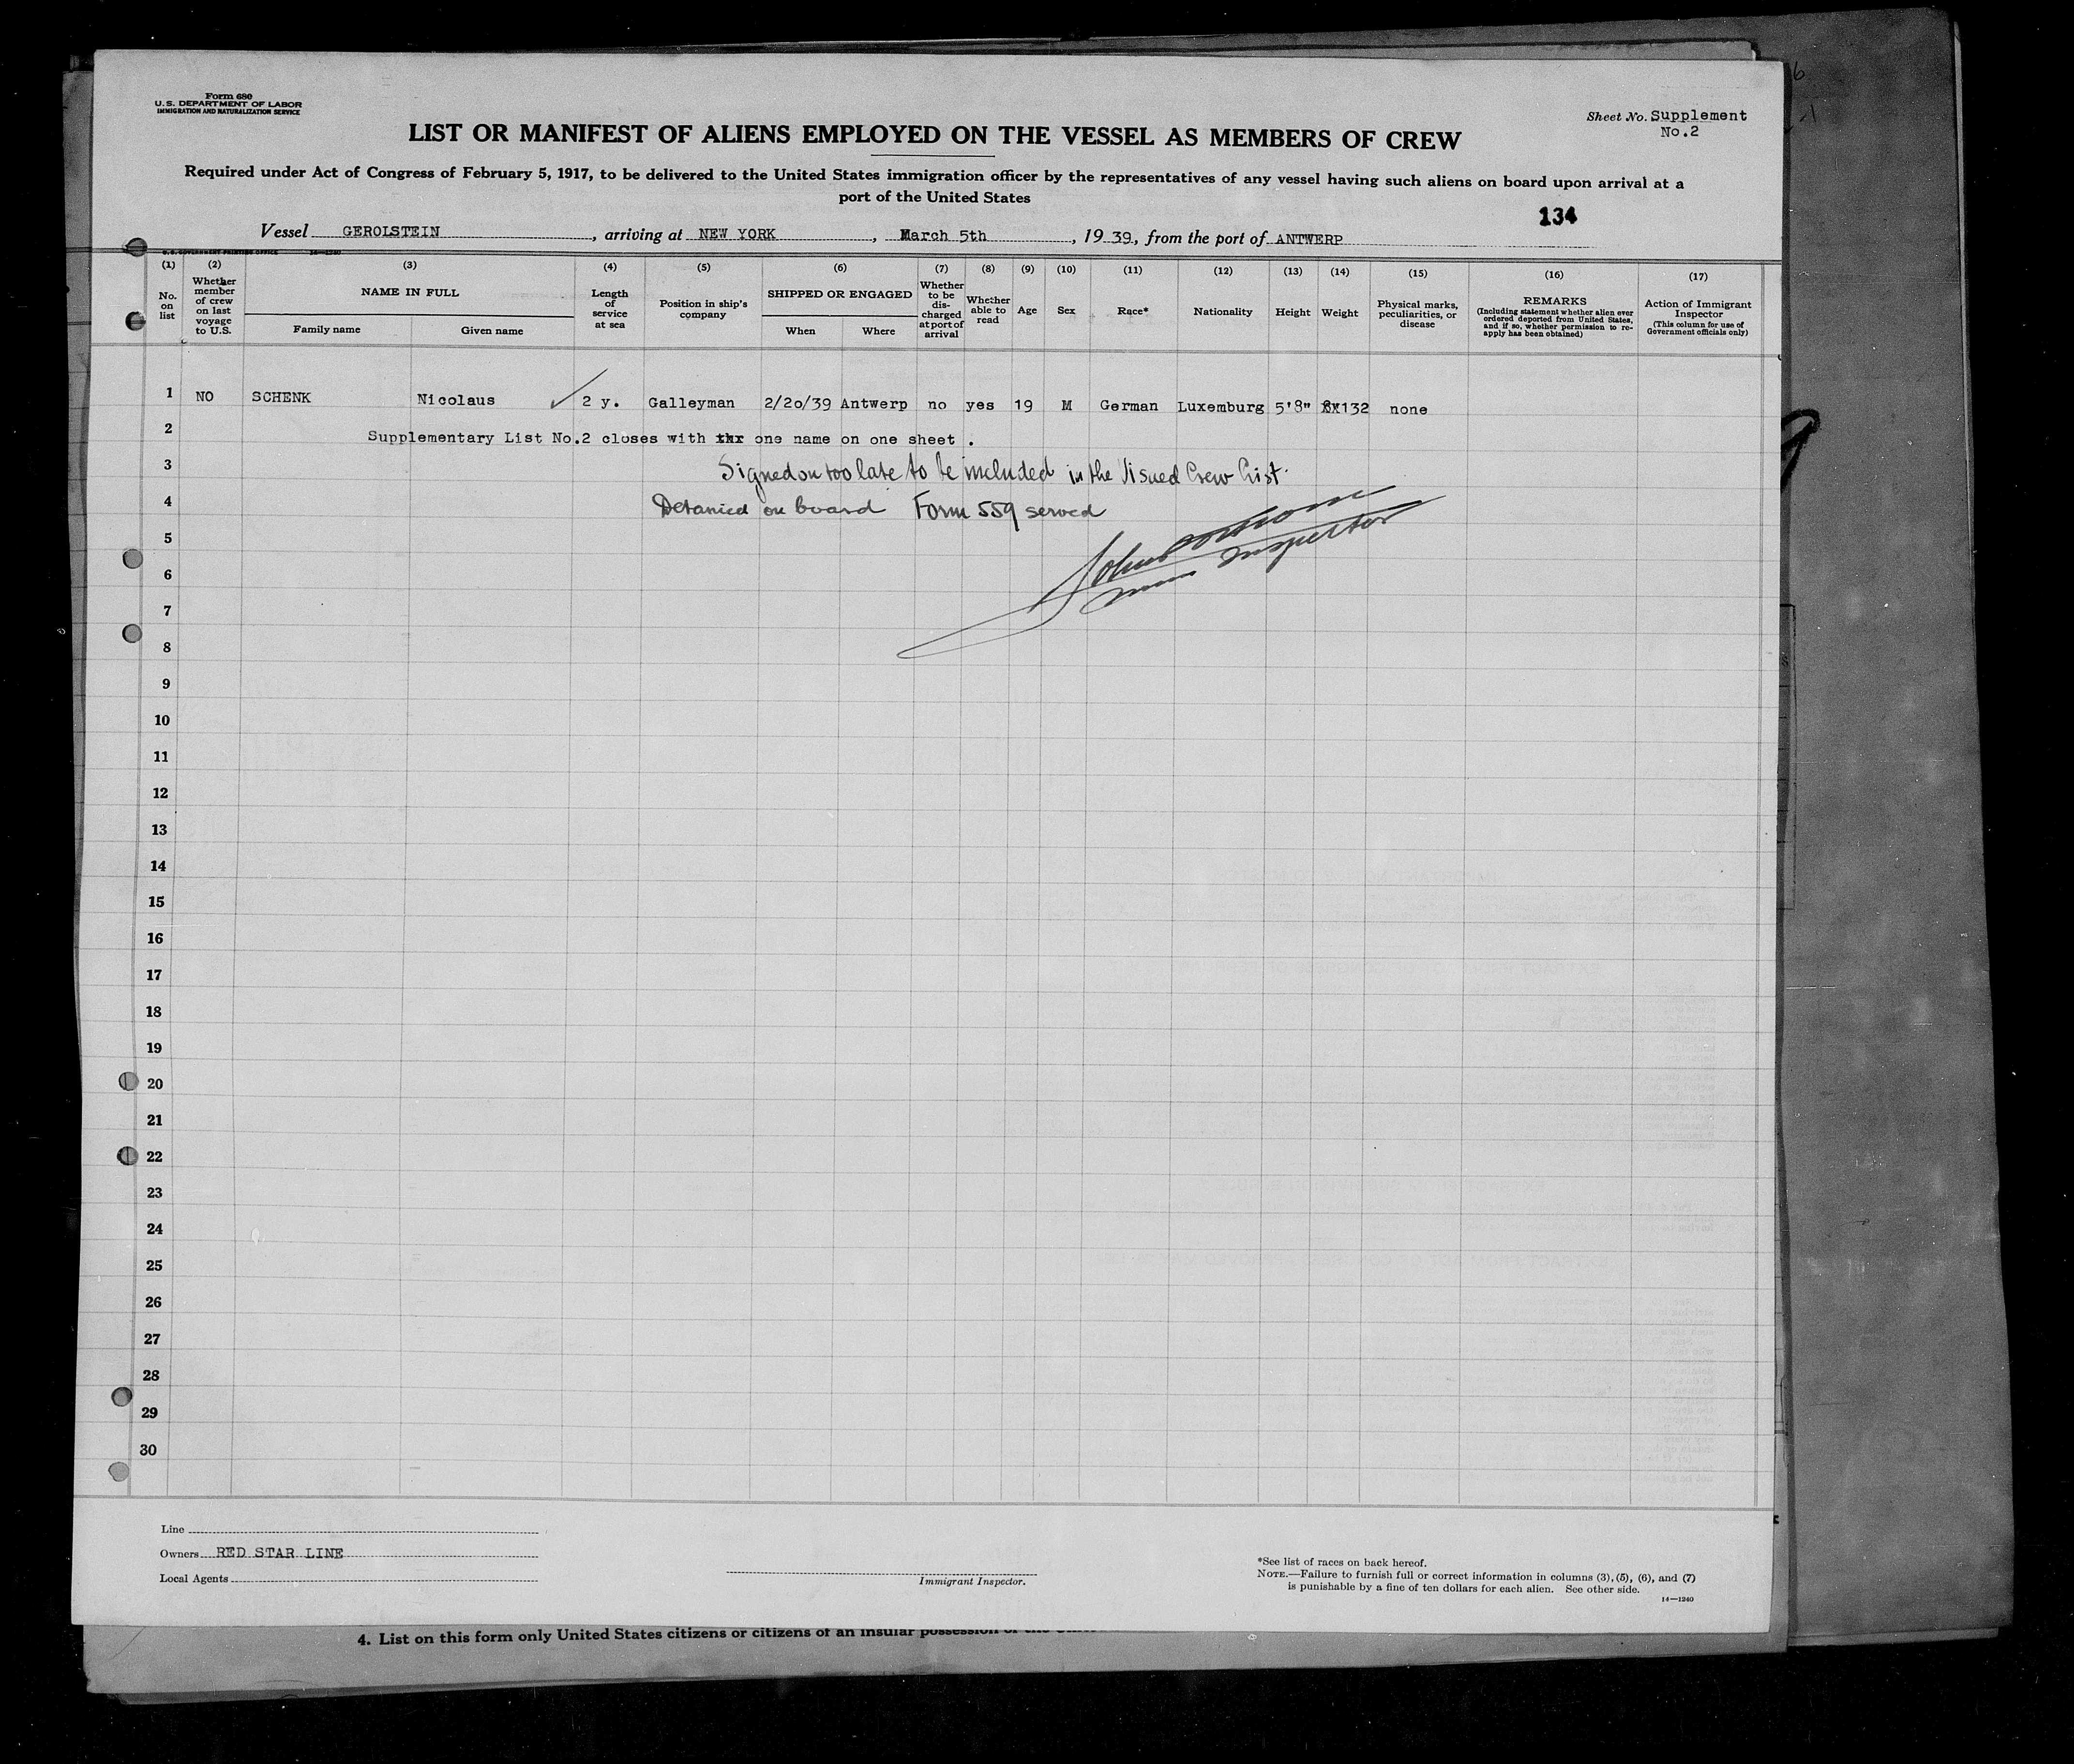 Form 680
U. S. DEPARTMENT OF LABOR
IMMIGRATION AND NATURALIZATION SERVICE
Sheet No. Supplement
No.2
LIST OR MANIFEST OF ALIENS EMPLOYED ON THE VESSEL AS MEMBERS OF CREW
Required under Act of Congress of February 5, 1917, to be delivered to the United States immigration officer by the representatives of any vessel having such aliens on board upon arrival at a
port of the United States
134
Vessel GEROLSTEIN, arriving at NEW YORK, March 5th, 1939, from the port of ANTWERP
U.S. GOVERNMENT PRINTING OFFICE 14—1240
(1) (2) (3) (4) (5) (6) (7) (8) (9) (10) (11) (12) (13) (14) (15) (16) (17)
No. on list
Whether member of crew on last voyage to U.S.
NAME IN FULL
Family name Given name
Length of service at sea
Position in ship's company
SHIPPED OR ENGAGED
When Where
Whether to be discharged at port of arrival
Whether able to read
Age
Sex
Race*
Nationality
Height
Weight
Physical marks, peculiarities, or disease
REMARKS
(Including statement whether alien ever ordered deported from United States, and if so, whether permission to reapply has been obtained)
Action of Immigrant Inspector
(This column for use of Government officials only)
1 NO SCHENK Nicolaus 2 y. Galleyman 2/20/39 Antwerp no yes 19 M German Luxemburg 5'8" 132 none
2 Supplementary List No.2 closes with one name on one sheet .
3 Signed on too late to be included in the Visued Crew List.
4 Detanied on board Form 559 served
5 Inspector
6
7
8
9
10
11
12
13
14
15
16
17
18
19
20
21
22
23
24
25
26
27
28
29
30
Line
Owners RED STAR LINE
Local Agents
Immigrant Inspector.
*See list of races on back hereof.
NOTE.—Failure to furnish full or correct information in columns (3), (5), (6), and (7)
is punishable by a fine of ten dollars for each alien. See other side.
14—1240
4. List on this form only United States citizens or citizens of an insular possession of the